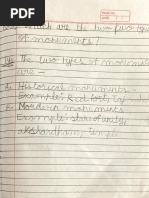 which are the two types
of monuments?
The two types of monume
are -
Historical monuments -
Example: Red fort,
Modern monuments
Example: statue of unity,
akshardham, temple